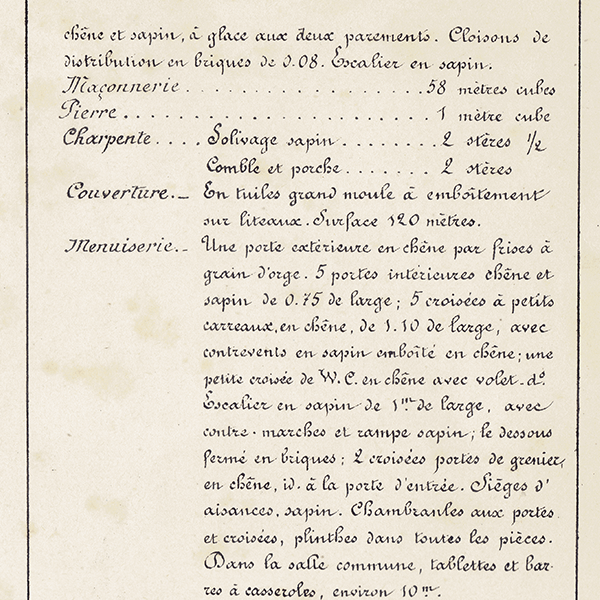 chêne et sapin, à glace aux deux parements. Cloisons de
distribution en briques de 0.08. Escalier en sapin.
Maçonnerie . . . . . . . . . . . . . . . . . . . . 58 mètres cubes
Pierre . . . . . . . . . . . . . . . . . . . . . . . . . 1 mètre cube
Charpente . . . . Solivage sapin . . . . . . . . 2 stères 1/2
Comble et porche . . . . . . . 2 stères
Couverture._ En tuiles grand moule à emboîtement
sur liteaux. Surface 120 mètres.
Menuiserie._ Une porte extérieure en chêne par frises à
grain d'orge. 5 portes intérieures chêne et
sapin de 0.75 de large; 5 croisées à petits
carreaux, en chêne, de 1.10 de large, avec
contrevents en sapin emboîté en chêne; une
petite croisée de W.C. en chêne avec volet _ do.
Escalier en sapin de 1m de large, avec
contre-marches et rampe sapin; le dessous
fermé en briques; 2 croisées portes de grenier,
en chêne, id. à la porte d'entrée. Sièges d'
aisances, sapin. Chambranles aux portes
et croisées, plinthes dans toutes les pièces.
Dans la salle commune, tablettes et bar-
res à casseroles, environ 10m.